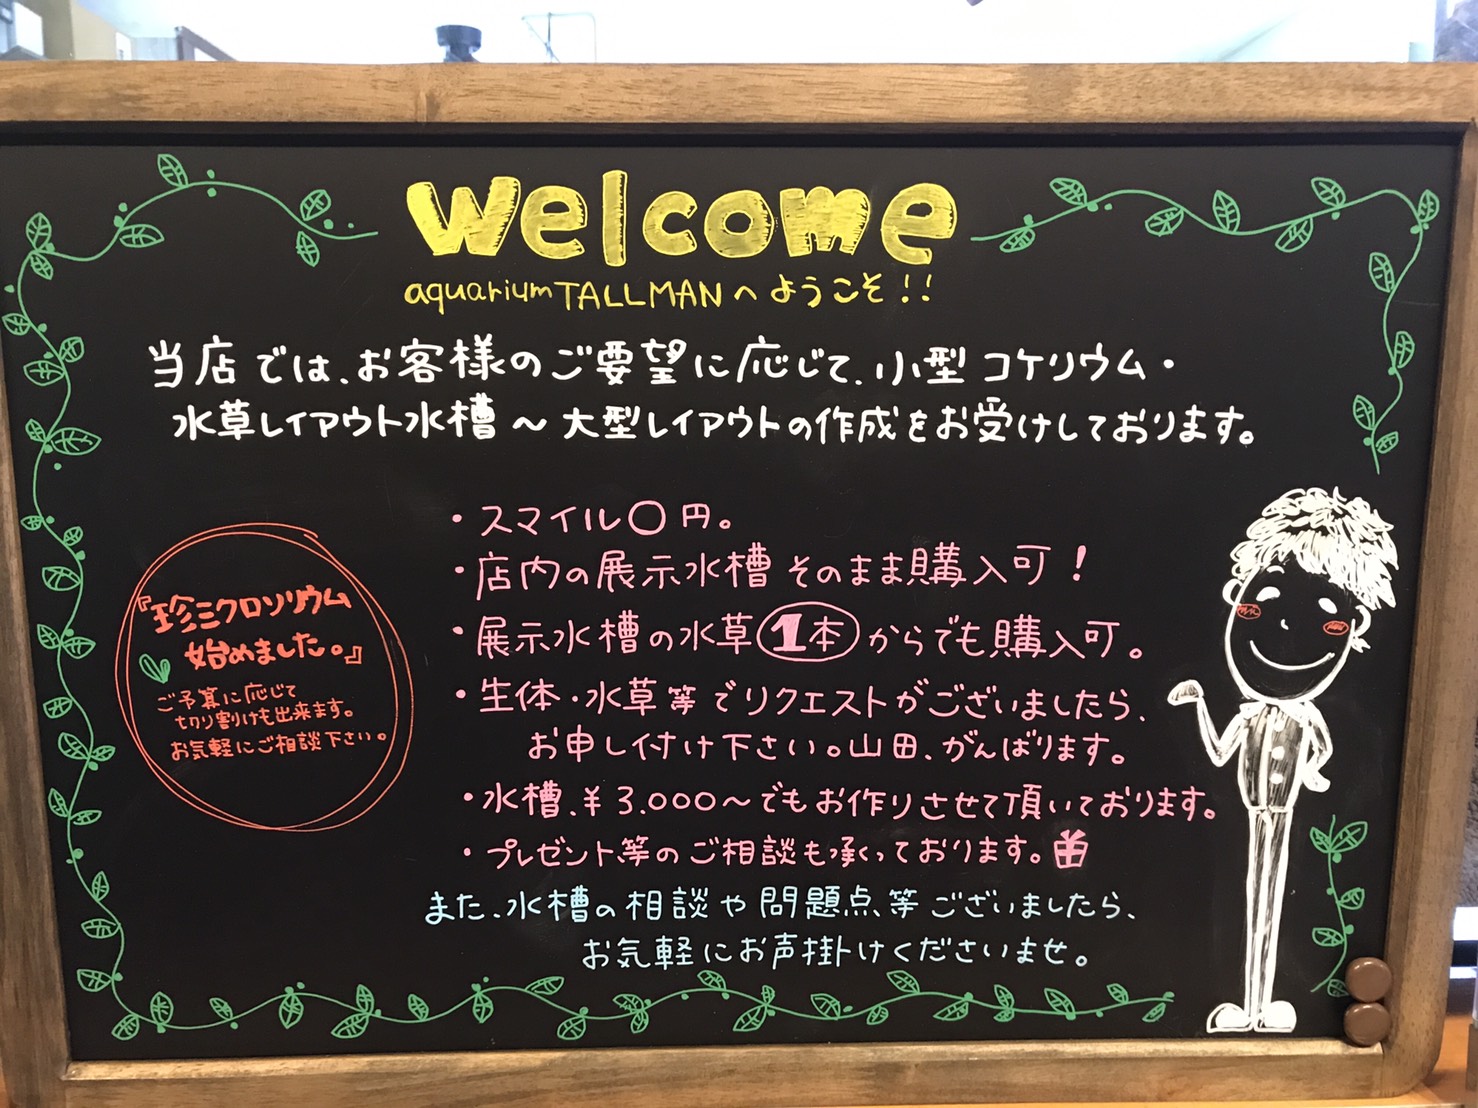 welcome
aquarium TALLMANへようこそ!!
当店では、お客様のご要望に応じて、小型コケリウム・
水草レイアウト水槽〜大型レイアウトの作成をお受けしております。
・スマイル〇円。
・店内の展示水槽そのまま購入可!
・展示水槽の水草1本からでも購入可。
・生体・水草等でリクエストがございましたら、
お申し付け下さい。山田、がんばります。
・水槽、¥3.000〜でもお作りさせて頂いております。
・プレゼント等のご相談も承っております。
また、水槽の相談や問題点等ございましたら、
お気軽にお声掛けくださいませ。
『珍ミクロソリウム
始めました。』
ご予算に応じて
切り割けも出来ます。
お気軽にご相談下さい。